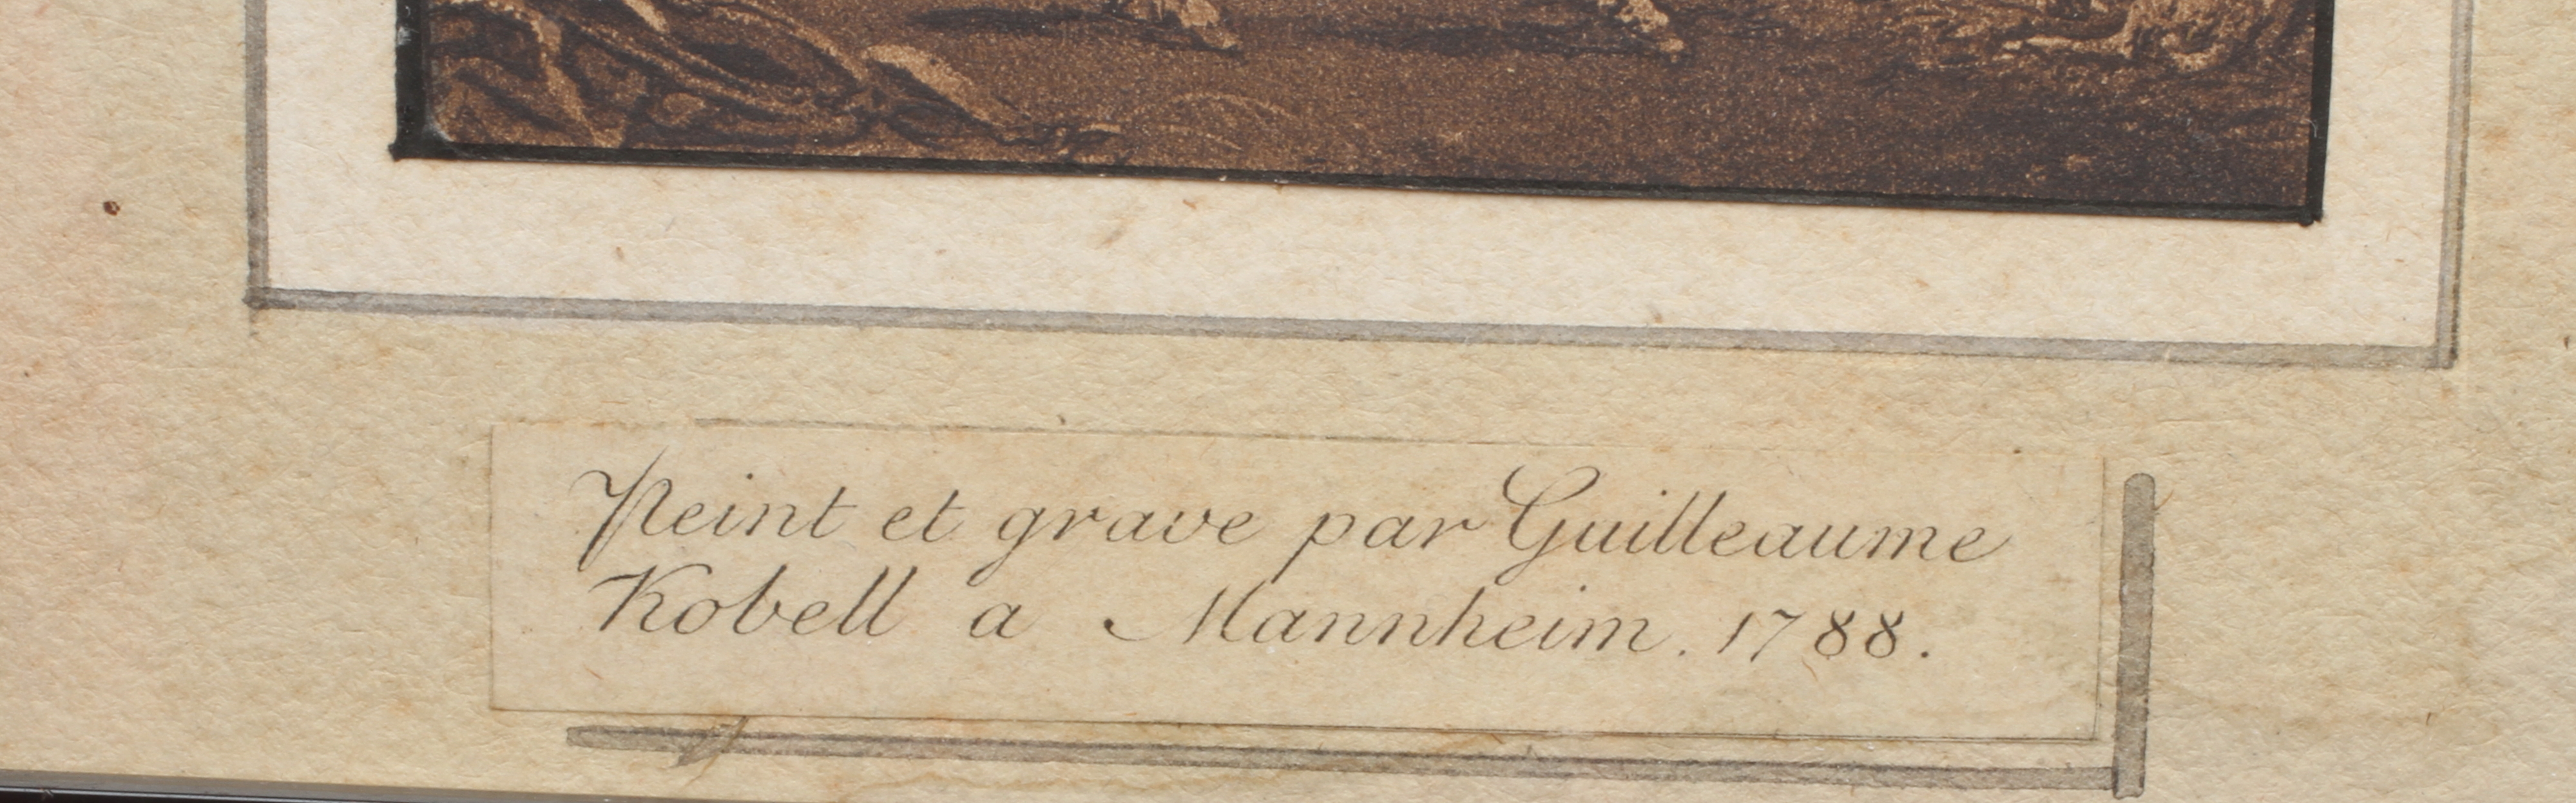 Peint et grave par Guilleaume
Kobell a Mannheim. 1788.